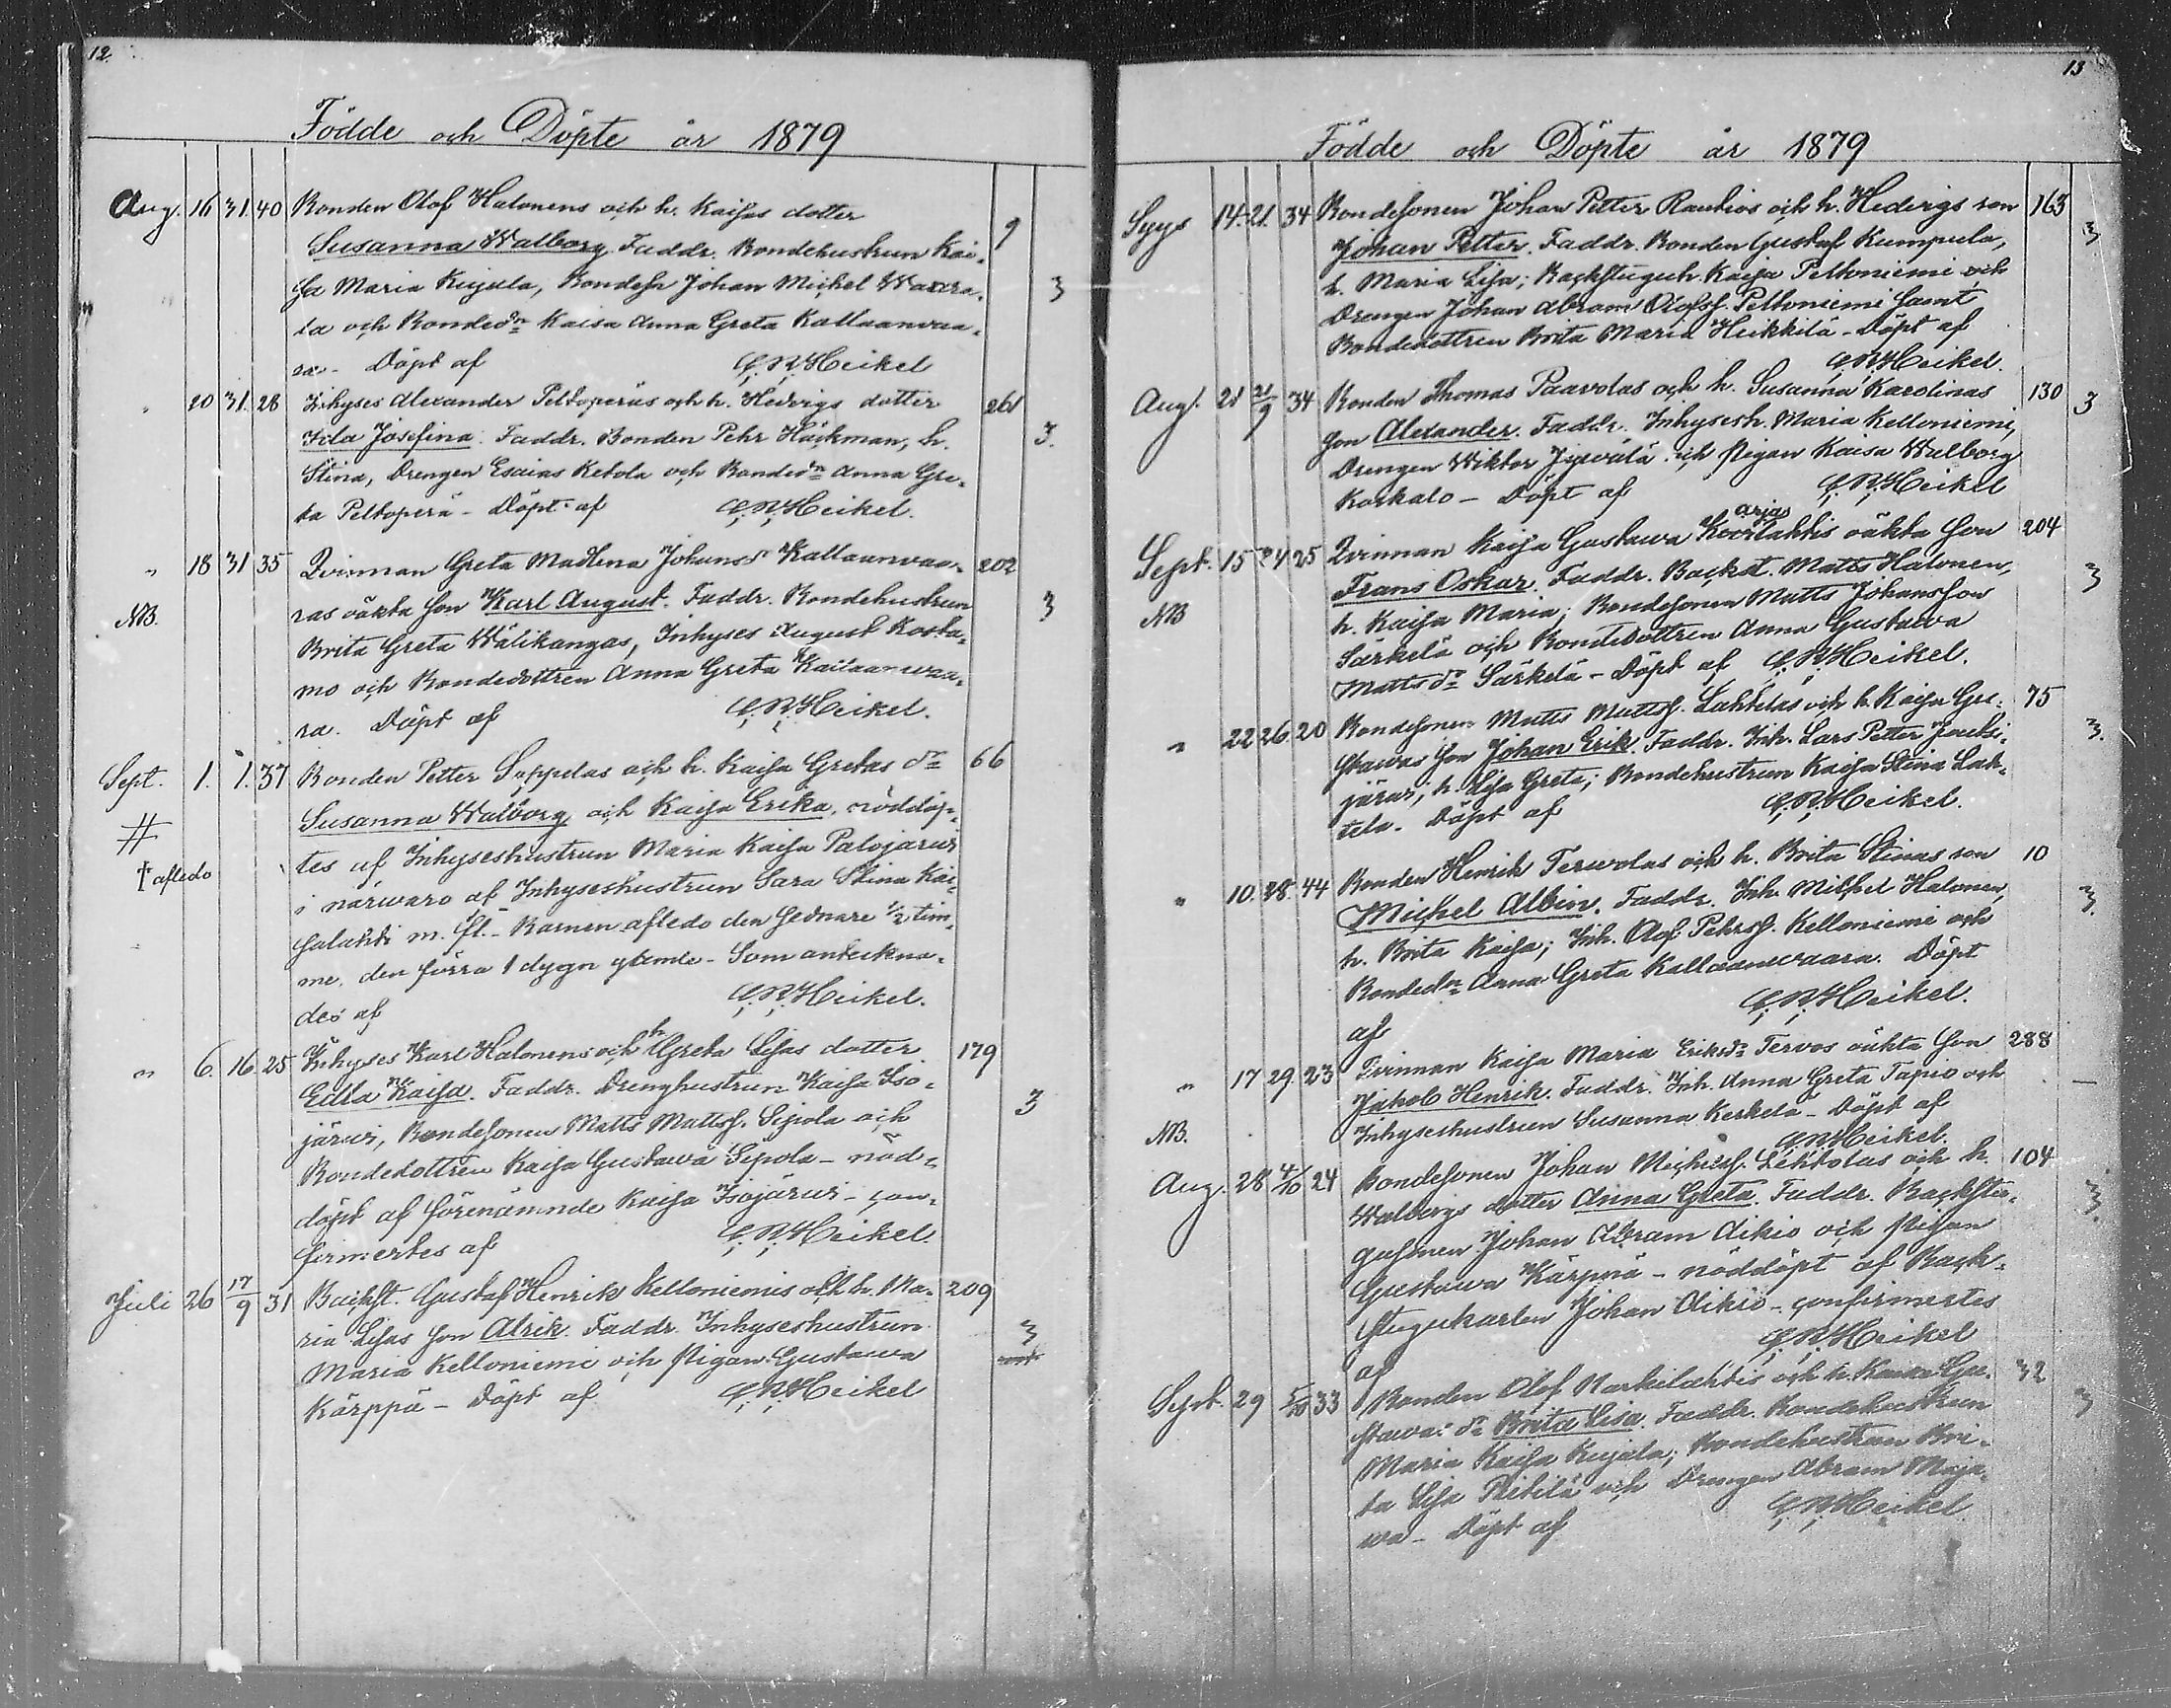 12.
Födde och Döpte år 1879
Aug. 16 31. 40 Bonden Olof Halonens och h. Kaisas dotter 9
Susanna Walborg. Faddr. Bondehustrun Kai-
sa Maria Kujala, Bondes. Johan Michel Waara- 3
la och Bonded:n Kaisa Anna Greta Kallaanvaa-
ra - Döpt af C. R. Heikel
" 20 31. 28 Inhyses Alexander Peltoperäs och h. Hedvigs dotter 261
Ida Josefina. Faddr. Bonden Pehr Häckman, h. 3.
Stina, Drengen Esaias Ketola och Bonded:n Anna Gre-
ta Peltoperä - Döpt af C. R. Heikel.
" 18 31 35 Qvinnan Greta Madlena Johansd:r Kallaanvaa- 202
NB. ras oäkta son Karl August. Faddr. Bondehustrun 3
Brita Greta Wälikangas, Inhyses August Kosta-
mo och Bondedottren Anna Greta Kallaanvaa-
ra. Döpt af C. R. Heikel.
Sept. 1. 1. 37 Bonden Petter Seppelas och h. Kaisa Gretas d:r 66
# Susanna Walborg och Kaisa Erika, nöddöp-
† afledo tes af Inhyseshustrun Maria Kaisa Palojärvi
i närwaro af Inhyseshustrun Sara Stina Kai-
salahti m. fl. - Barnen afledo den sednare 1/2 tim-
me, den förra 1 dygn gamle - Som antekna-
des af C. R. Heikel.
" 6. 16. 25 Inhyses Karl Halonens och h. Greta Lisas dotter 179
Edla Kaisa. Faddr. Drenghustrun Kaisa Iso- 3
järvi, Bondesonen Matts Mattss. Sipola och
Bondedottren Kaisa Gustawa Sipola - nöd-
döpt af förenämnde Kaisa Isojärvi - con-
firmertes af C. R. Heikel.
Juli 26 17/9 31 Backst. Gustaf Henrik Kelloniemis och h. Ma- 209
ria Lisas son Alrik. Faddr. Inhyseshustrun 3
Maria Kelloniemi och Pigan Gustawa
Kärppä - Döpt af C. R. Heikel
13
Födde och Döpte år 1879
Syys 14. 21. 34 Bondesonen Johan Petter Raukios och h. Hedvigs son 163
Johan Petter. Faddr. Bonden Gustaf Kumpula, 3
h. Maria Lisa; Backstuguh. Kaisa Peltoniemi och
Drengen Johan Abram Olofss. Peltoniemi samt
Bondedottren Brita Maria Heikkilä - Döpt af
C. R. Heikel.
Aug. 21 21/9 34 Bonden Thomas Paavolas och h. Susanna Karolinas 130 3
son Alexander. Faddr. Inhysesh. Maria Kelloniemi,
Drengen Wiktor och Pigan Kaisa Walborg
Korkalo - Döpt af C. R. Heikel
Sept. 15 24 25 Qvinnan Kaisa Gustawa oäkta son 204
NB Frans Oskar. Faddr. Backst. Matts Halonen, 3
h. Kaisa Maria; Bondesonen Matts Johansson
Särkelä och Bondedottren Anna Gustawa
Matts d:r Särkelä - Döpt af C. R. Heikel.
" 22 26. 20 Bondesonen Matts Mattss. Lahtelas och h. Kaisa Gu- 75
stawas son Johan Erik. Faddr. Inh. Lars Petter 3.
järvi, h. Lisa Greta; Bondehustrun Kaisa Stina Lah-
tela. Döpt af C. R. Heikel.
" 10. 28. 44 Bonden Henrik Terwolas och h. Brita Stinas son 10
Michel Albin. Faddr. Inh. Michel Halonen, 3.
h. Brita Kaisa; Inh. Olof Pehrss. Kelloniemi och
Bonded:n Anna Greta Kallaanvaara. Döpt
af C. R. Heikel.
" 17 29. 23 Qvinnan Kaisa Maria Eriksd:r Tervos oäkta son 288
NB. Jakob Henrik. Faddr. Inh. Anna Greta Tapio och —
Inhyseshustrun Susanna Kerkelä - Döpt af
C. R. Heikel.
Aug. 28 4/10 24 Bondesonen Johan Michelss. Lehtolas och h. 104
Walborgs dotter Anna Greta. Faddr. Backstu- 3.
gusonen Johan Abram Aikio och Pigan
Gustawa Kärppä - nöddöpt af Back-
stugukarlen Johan Aikio - confirmertes
af C. R. Heikel
Sept. 29 5/10 33 Bonden Olof Narkilahtis och h. Kaisa Gu- 32
stawas d:r Brita Lisa. Faddr. Bondehustrun 3
Maria Kaisa Kujala; Bondehustrun Bri-
ta Lisa Pietilä och Drengen Abram Maja-
wa - Döpt af C. R. Heikel